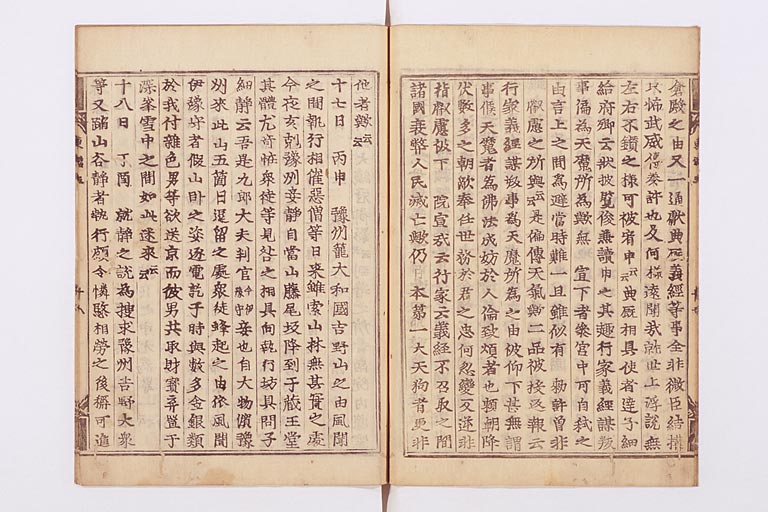 倉殿之由又一通献典厩義經等事全非微臣結搆
只怖武威傳奏許也及何樣遠聞哉就世上浮説無
左右不鑽之樣可被宥申云云典厩相具使者達子細
給府卿云状披覧後兼讀申之其趣行家義經謀叛
事偏為天魔所為歟無 宣下者參宮中可自殺之
由言上之間為避當時難一旦雖似有 勅許曾非
叡慮之所與云云是偏傳天氣歟二品被投返報云
行家義經謀叛事為天魔所為之由被仰下甚無謂
事候天魔者為佛法成妨於人倫致煩者也頼朝降
伏數多之朝敵奉任世務於君之忠何忽變反逆非
指叡慮被下 院宣哉云行家云義經不召取之間
諸國衰弊人民滅亡歟仍日本第一大天狗者更非
他者歟云云
十七日 丙申 豫州籠大和國吉野山之由風聞
之間執行相催惡僧等日來雖索山林無其實之處
今夜亥剋豫州妾靜自當山藤尾坂降到于蔵王堂
其體尤奇恠衆徒等見咎之相具向執行坊具問子
細靜云吾是九郎大夫判官今伊与守妾也自大物濱豫
州來此山五箇日逗留之處衆徒蜂起之由依風聞
伊豫守者假山臥之姿逐電訖于時與數多金銀類
於我付雜色男等欲送京而彼男共取財寳弃置于
深峯雪中之間如此迷來云云
十八日 丁酉 就靜之説為捜求豫州吉野大衆
等又踏山谷靜者執行頗令憐愍相勞之後稱可進